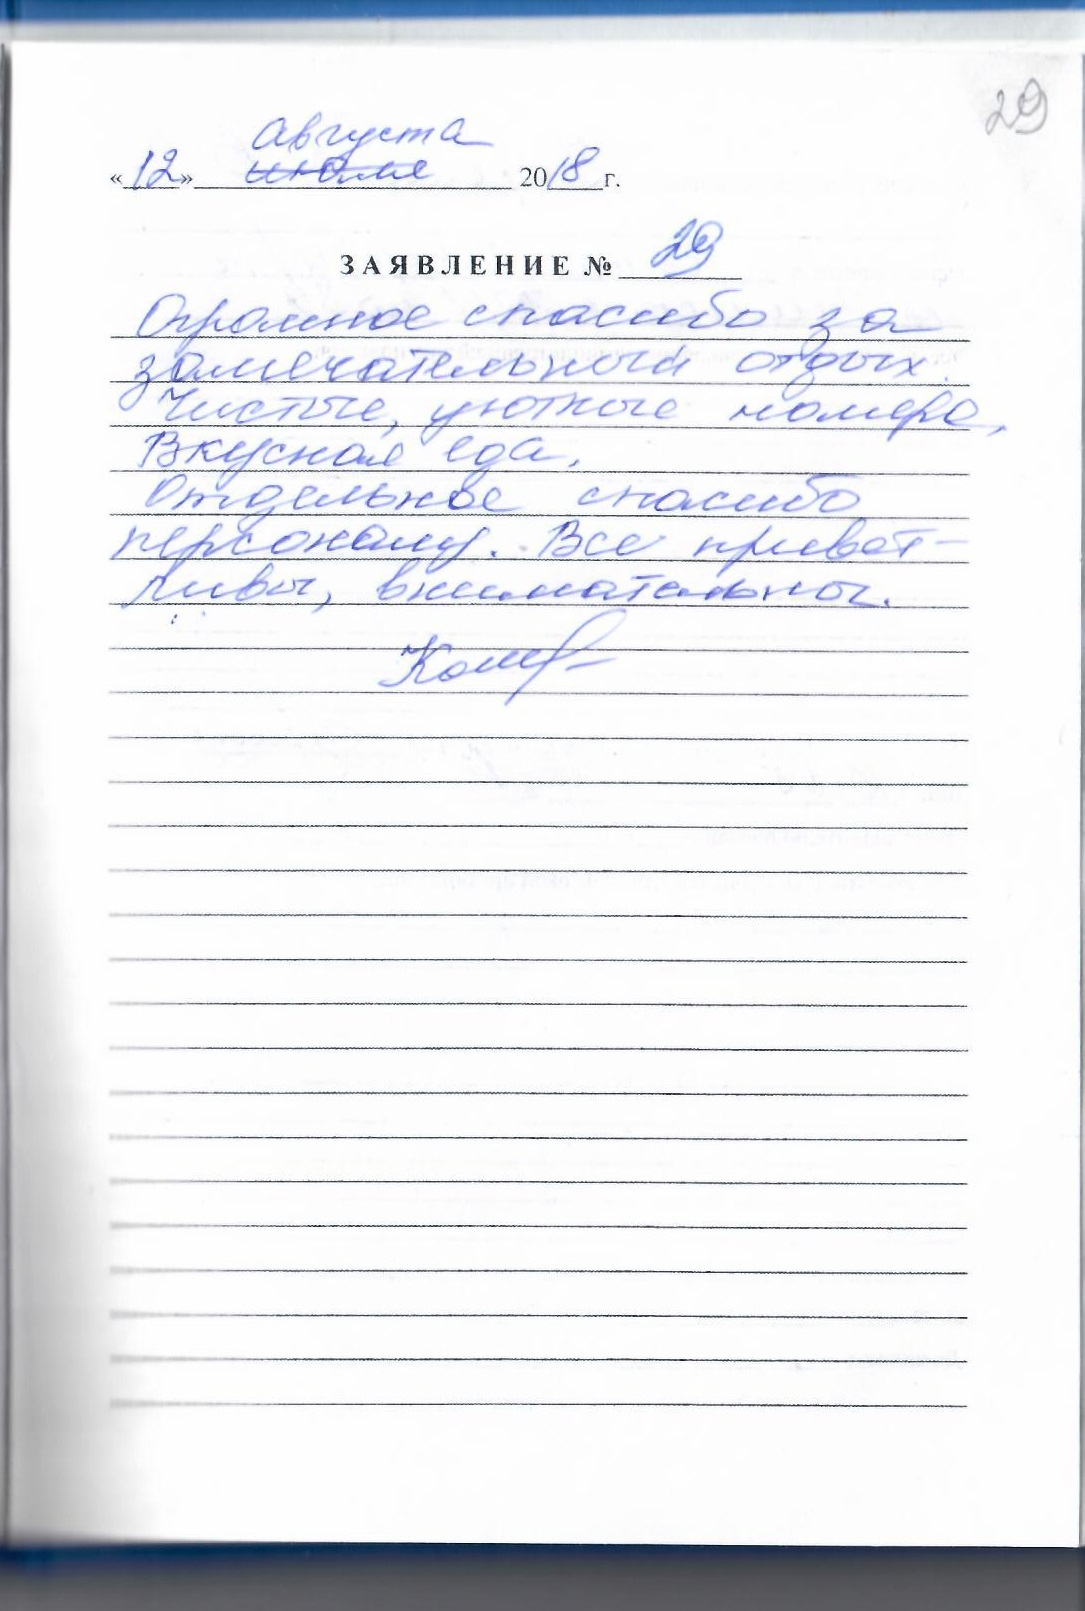 29
августа
«12» июля 2018 г.
ЗАЯВЛЕНИЕ № 29
Огромное спасибо за
замечательный отдых.
Чистые, уютные номера,
Вкусная еда.
Отдельное спасибо
персоналу. Все привет-
ливы, внимательны.